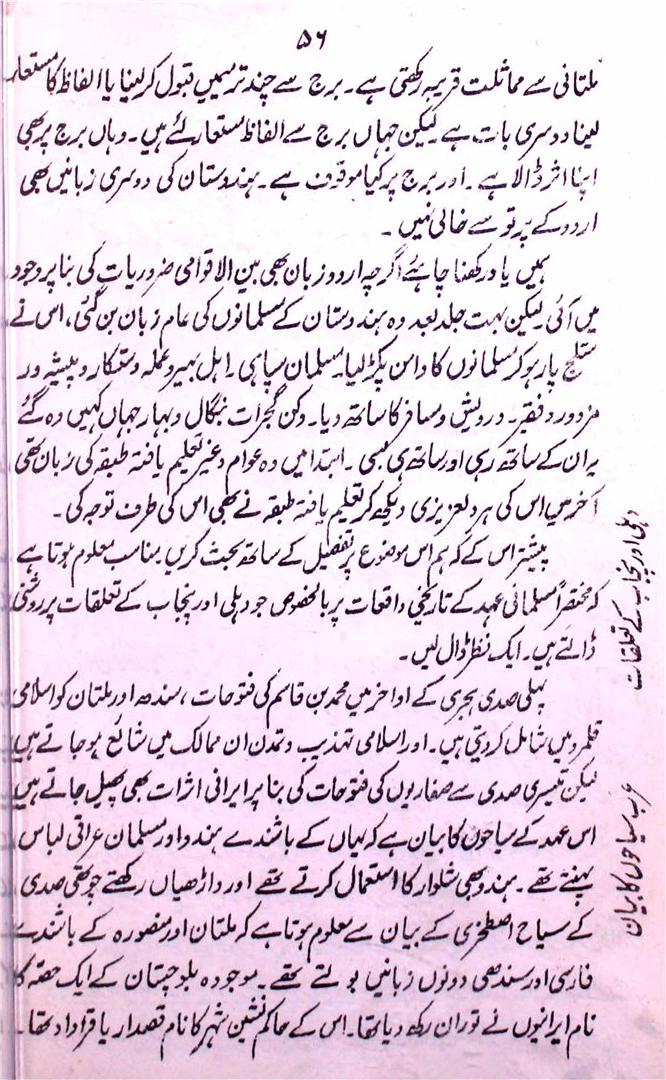 ۵۶
ملتانی سے مماثلت قریبہ رکھتی ہے۔ برج سے چند ترمیمیں قبول کرلینا یا الفاظ کا مستعار
لینا دوسری بات ہے لیکن جہاں برج سے الفاظ مستعار لئے ہیں۔ وہاں برج پر بھی
اپنا اثر ڈالا ہے۔ اور برج پر کیا موقوف ہے۔ ہندوستان کی دوسری زبانیں بھی
اردو کے پرتو سے خالی نہیں۔
ہمیں یاد رکھنا چاہئے اگرچہ اردو زبان بھی بین الاقوامی ضروریات کی بنا پر وجود
میں آئی۔ لیکن بہت جلد بعد وہ ہندوستان کے مسلمانوں کی عام زبان بن گئی، اس نے
ستلج پار ہوکر مسلمانوں کا دامن پکڑ لیا۔ مسلمان سپاہی۔ اہل بہیر و عملہ دستکار و پیشہ ور
مزدور و فقیر۔ درویش و مسافر کا ساتھ دیا۔ دکن گجرات بنگال و بہار جہاں کہیں وہ گئے
یہ ان کے ساتھ رہی اور ساتھ ہی بسی۔ ابتدا میں وہ عوام و غیر تعلیم یافتہ طبقہ کی زبان تھی
آخر میں اس کی ہردلعزیزی دیکھ کر تعلیم یافتہ طبقہ نے بھی اس کی طرف توجہ کی۔
پیشتر اس کے کہ ہم اس موضوع پر تفصیل کے ساتھ بحث کریں۔ مناسب معلوم ہوتا ہے
کہ مختصراً مسلمانی عہد کے تاریخی واقعات پر بالخصوص جو دہلی اور پنجاب کے تعلقات پر روشنی
ڈالتے ہیں۔ ایک نظر ڈال لیں۔
دہلی اور پنجاب کے تعلقات
پہلی صدی ہجری کے اواخر میں محمد بن قاسم کی فتوحات، سندھ اور ملتان کو اسلامی
قلمرو میں شامل کردیتی ہیں۔ اور اسلامی تہذیب و تمدن ان ممالک میں شائع ہو جاتے ہیں
لیکن تیسری صدی سے صفاریوں کی فتوحات کی بنا پر ایرانی اثرات بھی پھیل جاتے ہیں
اس عہد کے سیاحوں کا بیان ہے کہ یہاں کے باشندے ہندو اور مسلمان عراقی لباس
پہنتے تھے۔ ہندو بھی شلوار کا استعمال کرتے تھے اور داڑھیاں رکھتے چوتھی صدی
کے سیاح اصطخری کے بیان سے معلوم ہوتا ہے کہ ملتان اور منصورہ کے باشندے
فارسی اور سندھی دونوں زبانیں بولتے تھے۔ موجودہ بلوچستان کے ایک حصہ کا
نام ایرانیوں نے توران رکھ دیا تھا۔ اس کے حاکم نشین شہر کا نام قصدار یا قزاداد تھا۔
عرب سیاحوں کا بیان